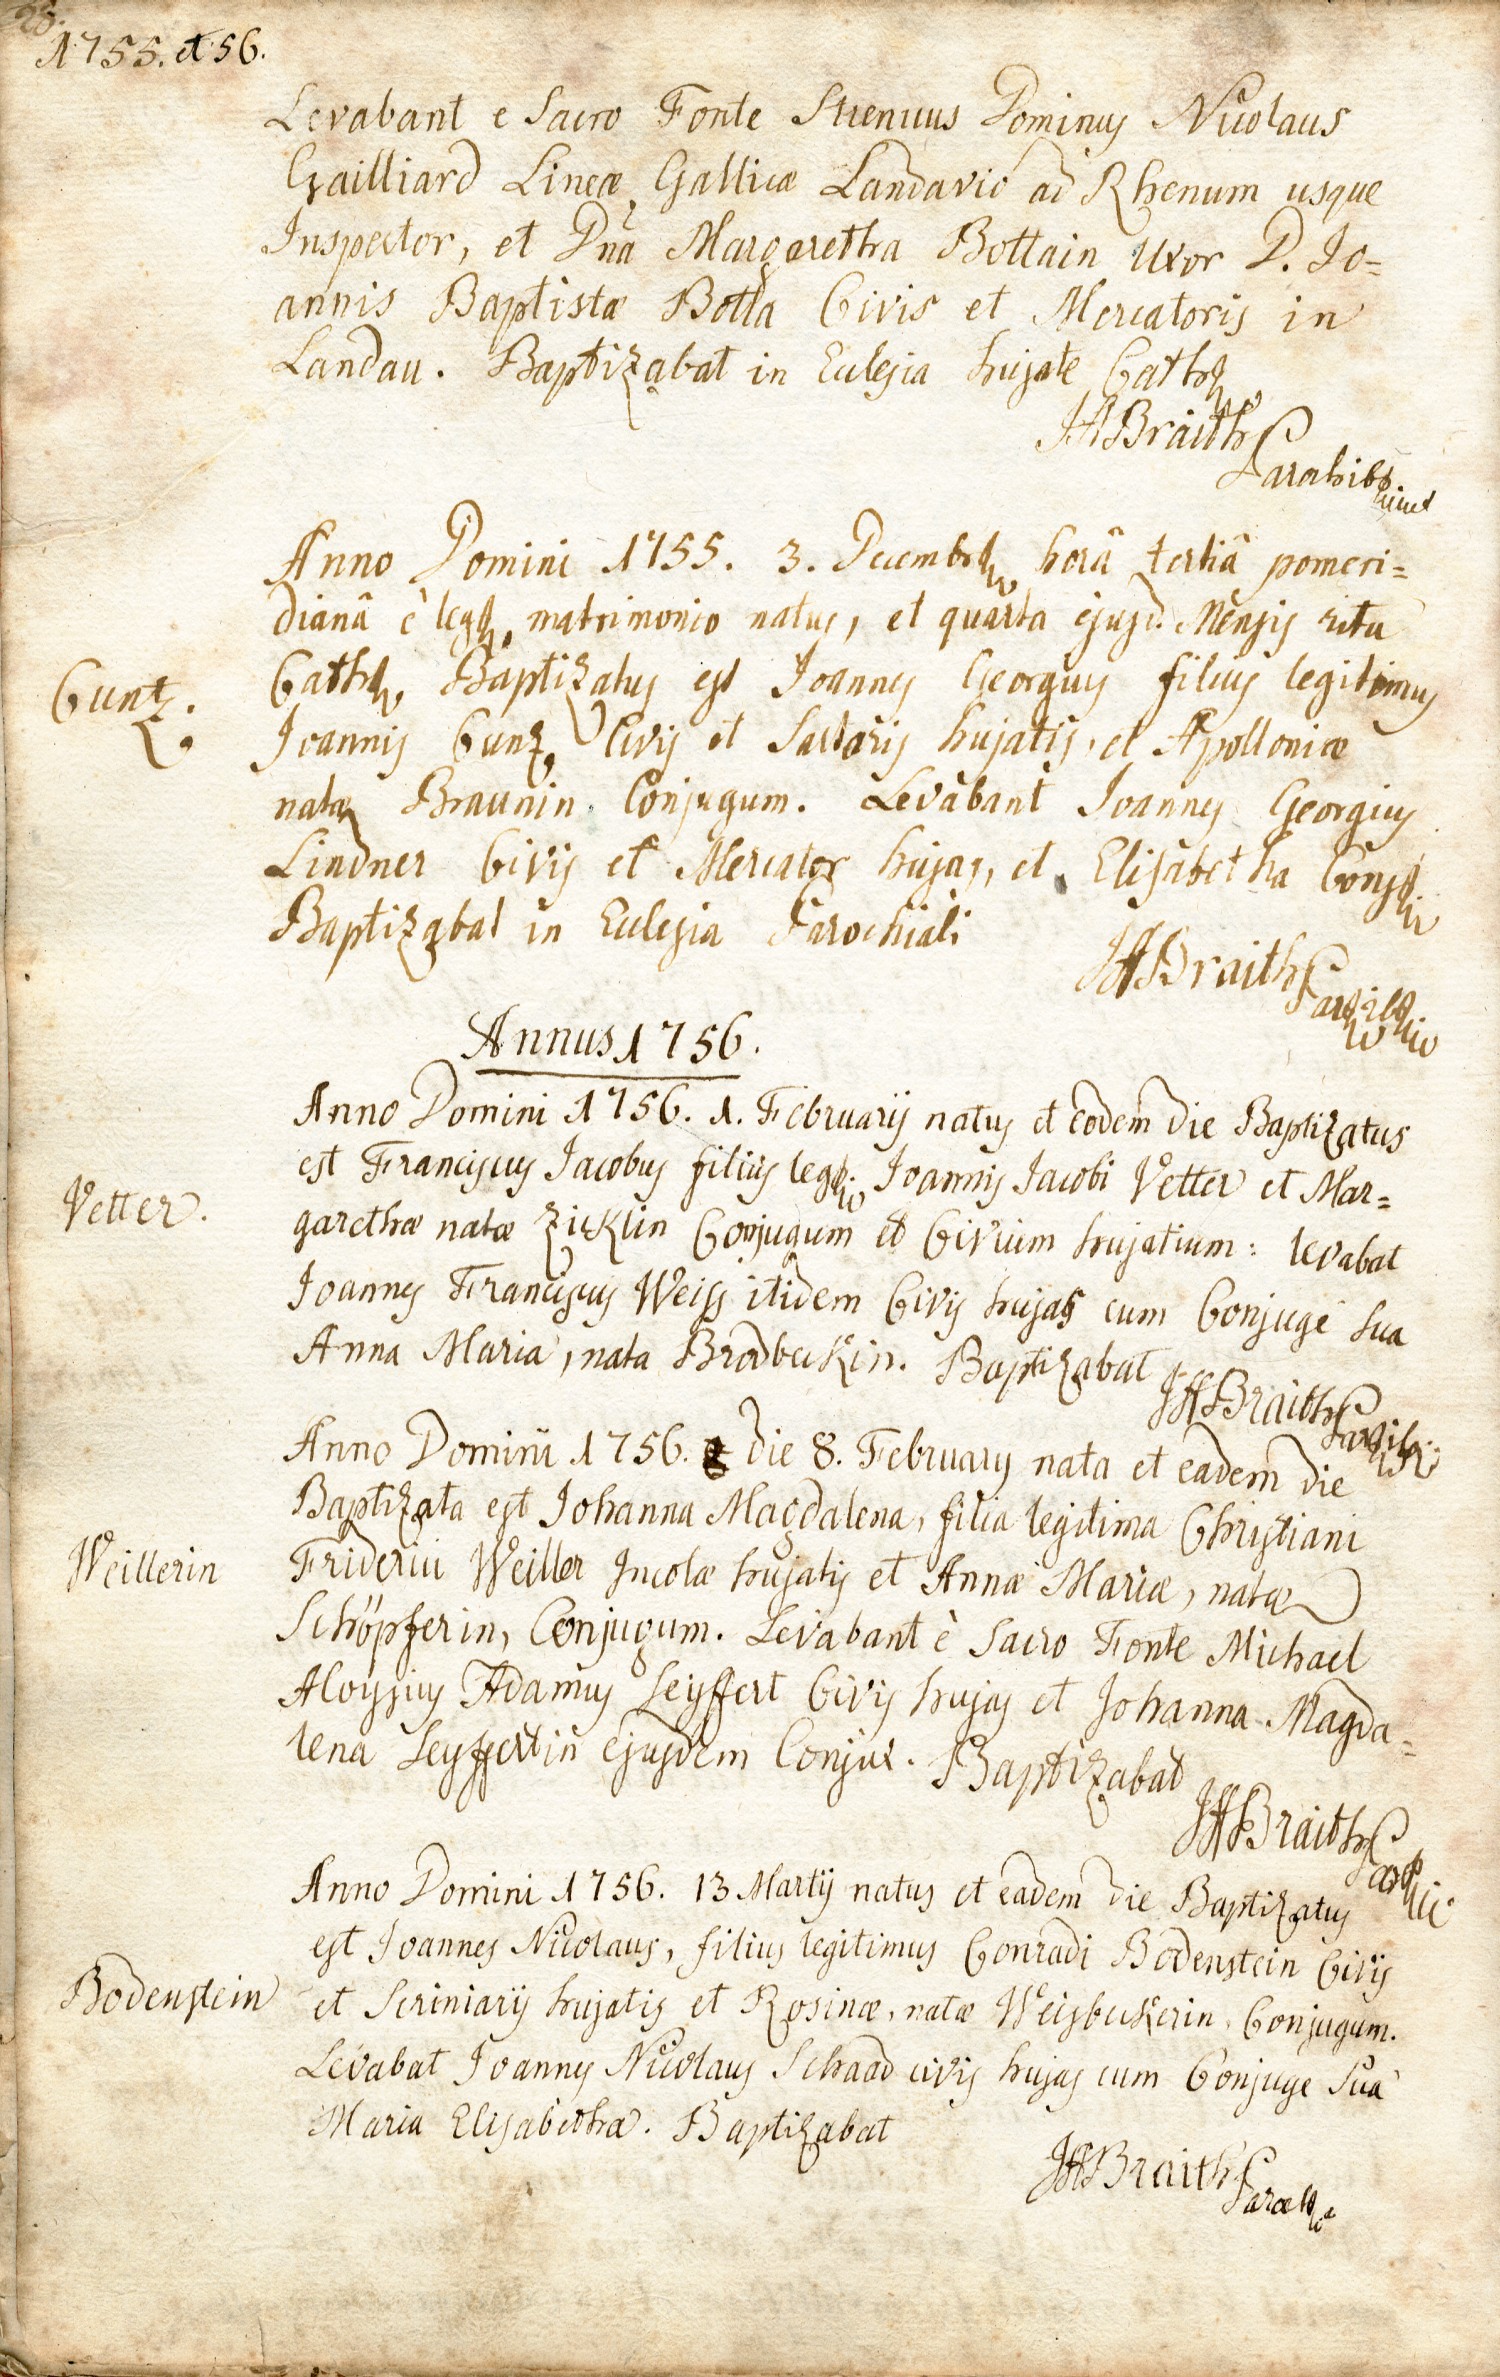 1755. et 56.
Levabant e Sacro Fonte Strenuus Dominus Nicolaus
Gailliard Lineæ Gallicæ Landavio ad Rhenum usque
Inspector, et Dna Margaretha Bottain Uxor D. Jo=
annis Baptistæ Botta Civis et Mercatoris in
Landau. Baptizabat in Eclesia hujate Cath
JABraith
Anno Domini 1755. 3. Decemb horâ tertiâ pomeri=
dianâ è leg matrimonio natus, et quarta ejusd. Mensis ritu
Cunz. Cath Baptizatus est Joannes Georgius filius legitimus
Joannis Cunz Civis et Sartoris hujatis, et Apolloniæ
natæ Braunin Conjugum. Levabant Joannes Georgius
Lindner Civis et Mercator hujas, et Elisabetha Conj
Baptizabat in Eclesia Parochiali
JABraith
Annus 1756.
Anno Domini 1756. 1. Februarij natus et eodem die Baptizatus
est Franciscus Jacobus filius leg Joannis Jacobi Vetter et Mar=
Vetter. garethæ natæ Zicklin Conjugum et Civium hujatium: levabat
Joannes Franciscus Weiss itidem Civis hujas cum Conjuge sua
Anna Maria, nata Brodbeckin. Baptizabat
JABraith
Anno Domini 1756. die 8. February nata et eadem die
Baptizata est Johanna Magdalena, filia legitima Christiani
Weillerin Friderici Weiller Incolæ hujatis et Annæ Mariæ, natæ
Schöpferin, Conjugum. Levabant è Sacro Fonte Michael
Aloysius Adamus Seyffert Civis hujas et Johanna Magda=
lena Seyffertin ejusdem Conjux. Baptizabat
JABraith
Anno Domini 1756. 13 Martij natus et eadem die Baptizatus
est Joannes Nicolaus, filius legitimus Conradi Bodenstein Civis
Bodenstein et Scriniarij hujatis et Rosinæ, natæ Weisbeckerin, Conjugum.
Levabat Joannes Nicolaus Schaad civis hujas cum Conjuge sua
Maria Elisabetha. Baptizabat
JABraith